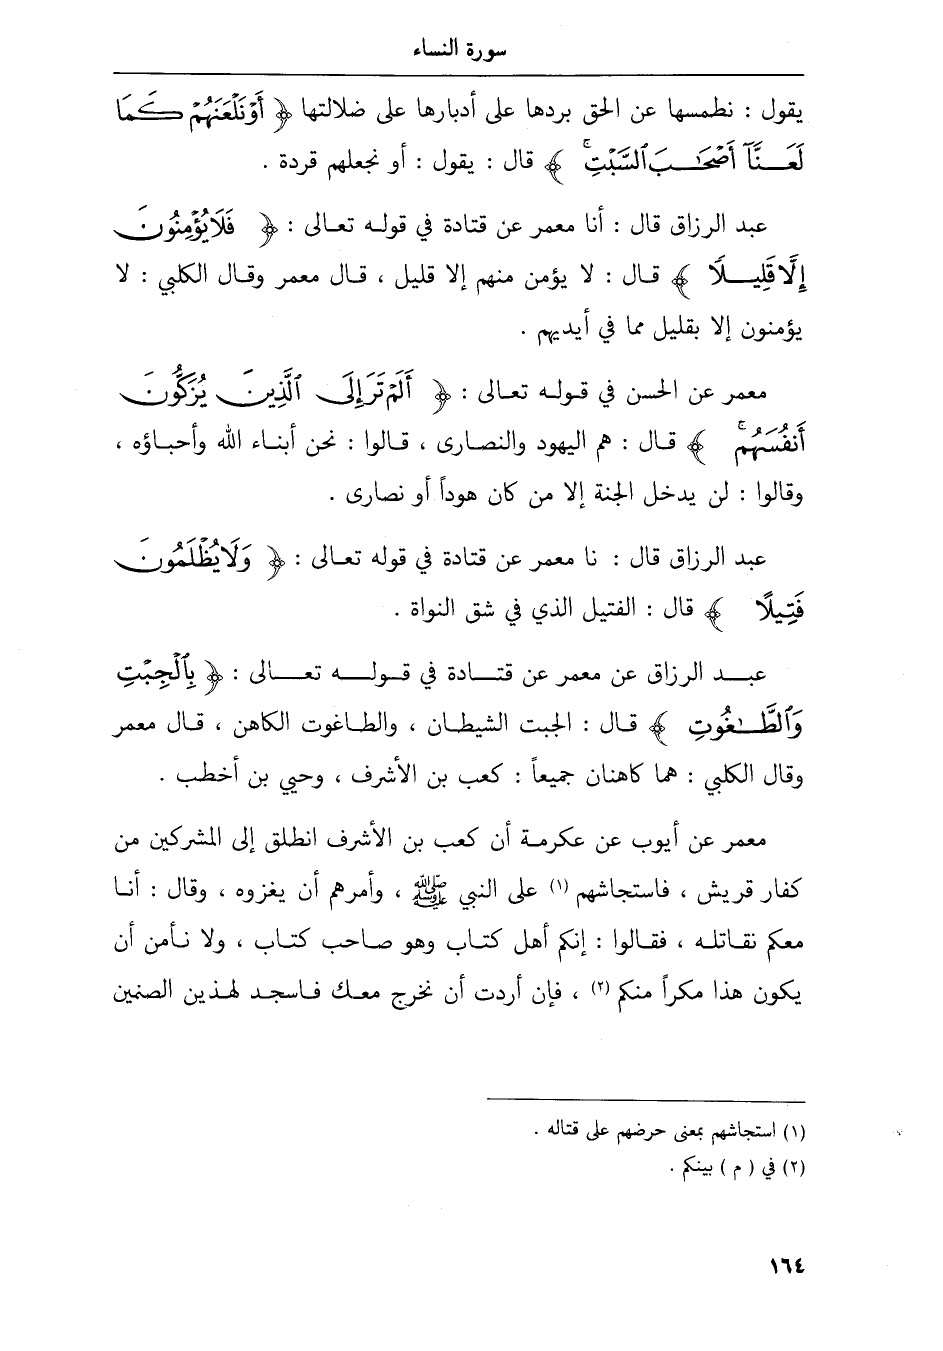 سورة النساء
يقول : نطمسها عن الحق بردها على أدبارها على ضلالتها ﴿ أَوْ نَلْعَنَهُمْ كَمَا
لَعَنَّآ أَصْحَٰبَ ٱلسَّبْتِ ۚ ﴾ قال : يقول : أو نجعلهم قردة .
عبد الرزاق قال : أنا معمر عن قتادة في قوله تعالى : ﴿ فَلَا يُؤْمِنُونَ
إِلَّا قَلِيلًا ﴾ قال : لا يؤمن منهم إلا قليل ، قال معمر وقال الكلبي : لا
يؤمنون إلا بقليل مما في أيديهم .
معمر عن الحسن في قوله تعالى : ﴿ أَلَمْ تَرَ إِلَى ٱلَّذِينَ يُزَكُّونَ
أَنفُسَهُم ۚ ﴾ قال : هم اليهود والنصارى ، قالوا : نحن أبناء الله وأحباؤه ،
وقالوا : لن يدخل الجنة إلا من كان هوداً أو نصارى .
عبد الرزاق قال : نا معمر عن قتادة في قوله تعالى : ﴿ وَلَا يُظْلَمُونَ
فَتِيلًا ﴾ قال : الفتيل الذي في شق النواة .
عبد الرزاق عن معمر عن قتادة في قوله تعالى : ﴿ بِٱلْجِبْتِ
وَٱلطَّٰغُوتِ ﴾ قال : الجبت الشيطان ، والطاغوت الكاهن ، قال معمر
وقال الكلبي : هما كاهنان جميعاً : كعب بن الأشرف ، وحيي بن أخطب .
معمر عن أيوب عن عكرمة أن كعب بن الأشرف انطلق إلى المشركين من
كفار قريش ، فاستجاشهم (١) على النبي ﷺ ، وأمرهم أن يغزوه ، وقال : أنا
معكم نقاتله ، فقالوا : إنكم أهل كتاب وهو صاحب كتاب ، ولا نأمن أن
يكون هذا مكراً منكم (٢) ، فإن أردت أن نخرج معك فاسجد لهذين الصنمين
(١) استجاشهم بمعنى حرضهم على قتاله .
(٢) في ( م ) بينكم .
١٦٤